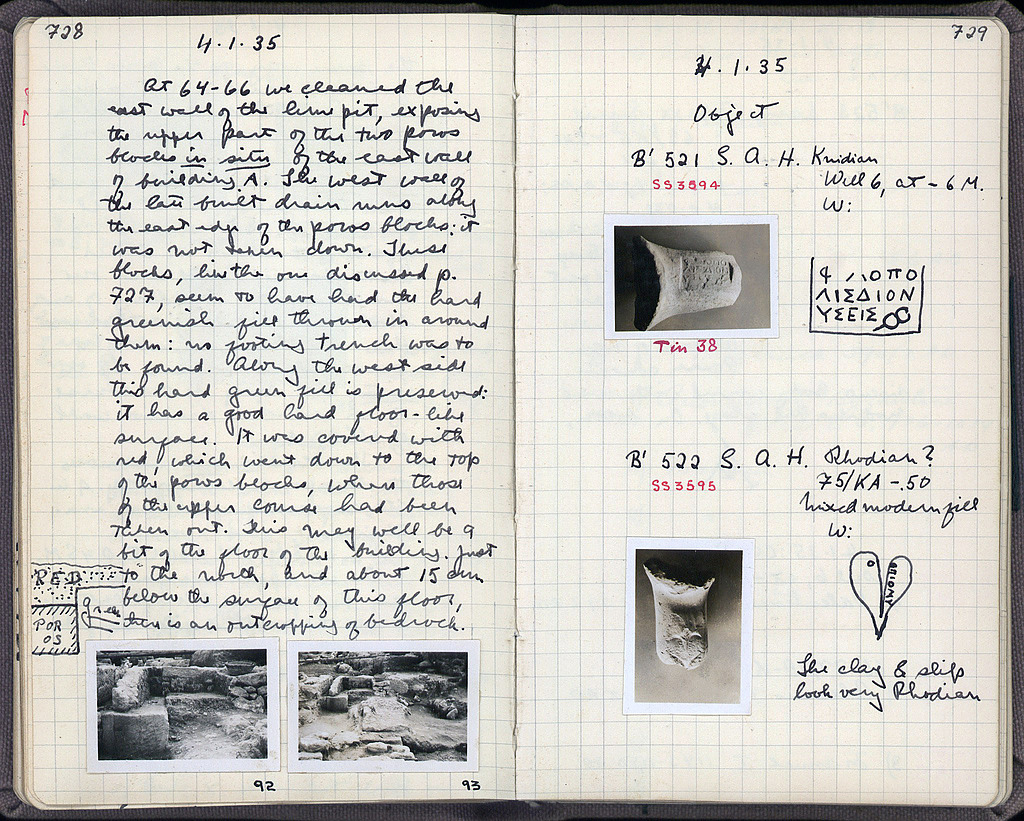 728
4.1.35
At 64-66 we cleaned the
east wall of the lime pit, exposing
the upper part of the two poros
blocks in situ of the east wall
of building A. The west wall of
the late built drain runs along
the east edge of the poros blocks: it
was not taken down. These
blocks, like the one discussed p.
727, seem to have had the hard
greenish fill thrown in around
them: no footing trench was to
be found. Along the west side
this hard green fill is preserved:
it has a good hard floor-like
surface. It was covered with
red, which went down to the top
of the poros blocks, where those
of the upper course had been
taken out. This may well be a
bit of the floor of the building. Just
to the north, and about 15 cm
below the surface of this floor,
there is an outcropping of bedrock.
RED
green
POR
OS
92
93
729
4.1.35
Object
B' 521 S. A. H. Knidian
SS3594
Well 6, at -6 M.
W:
Φ ΛΙΟΠΟ
ΛΙΣΔΙΟΝ
ΥΣΕΙΣ
Tin 38
B' 522 S. A. H. Rhodian?
SS3595
75/KA -.50
Mixed modern fill
W:
The clay & slip
look very Rhodian